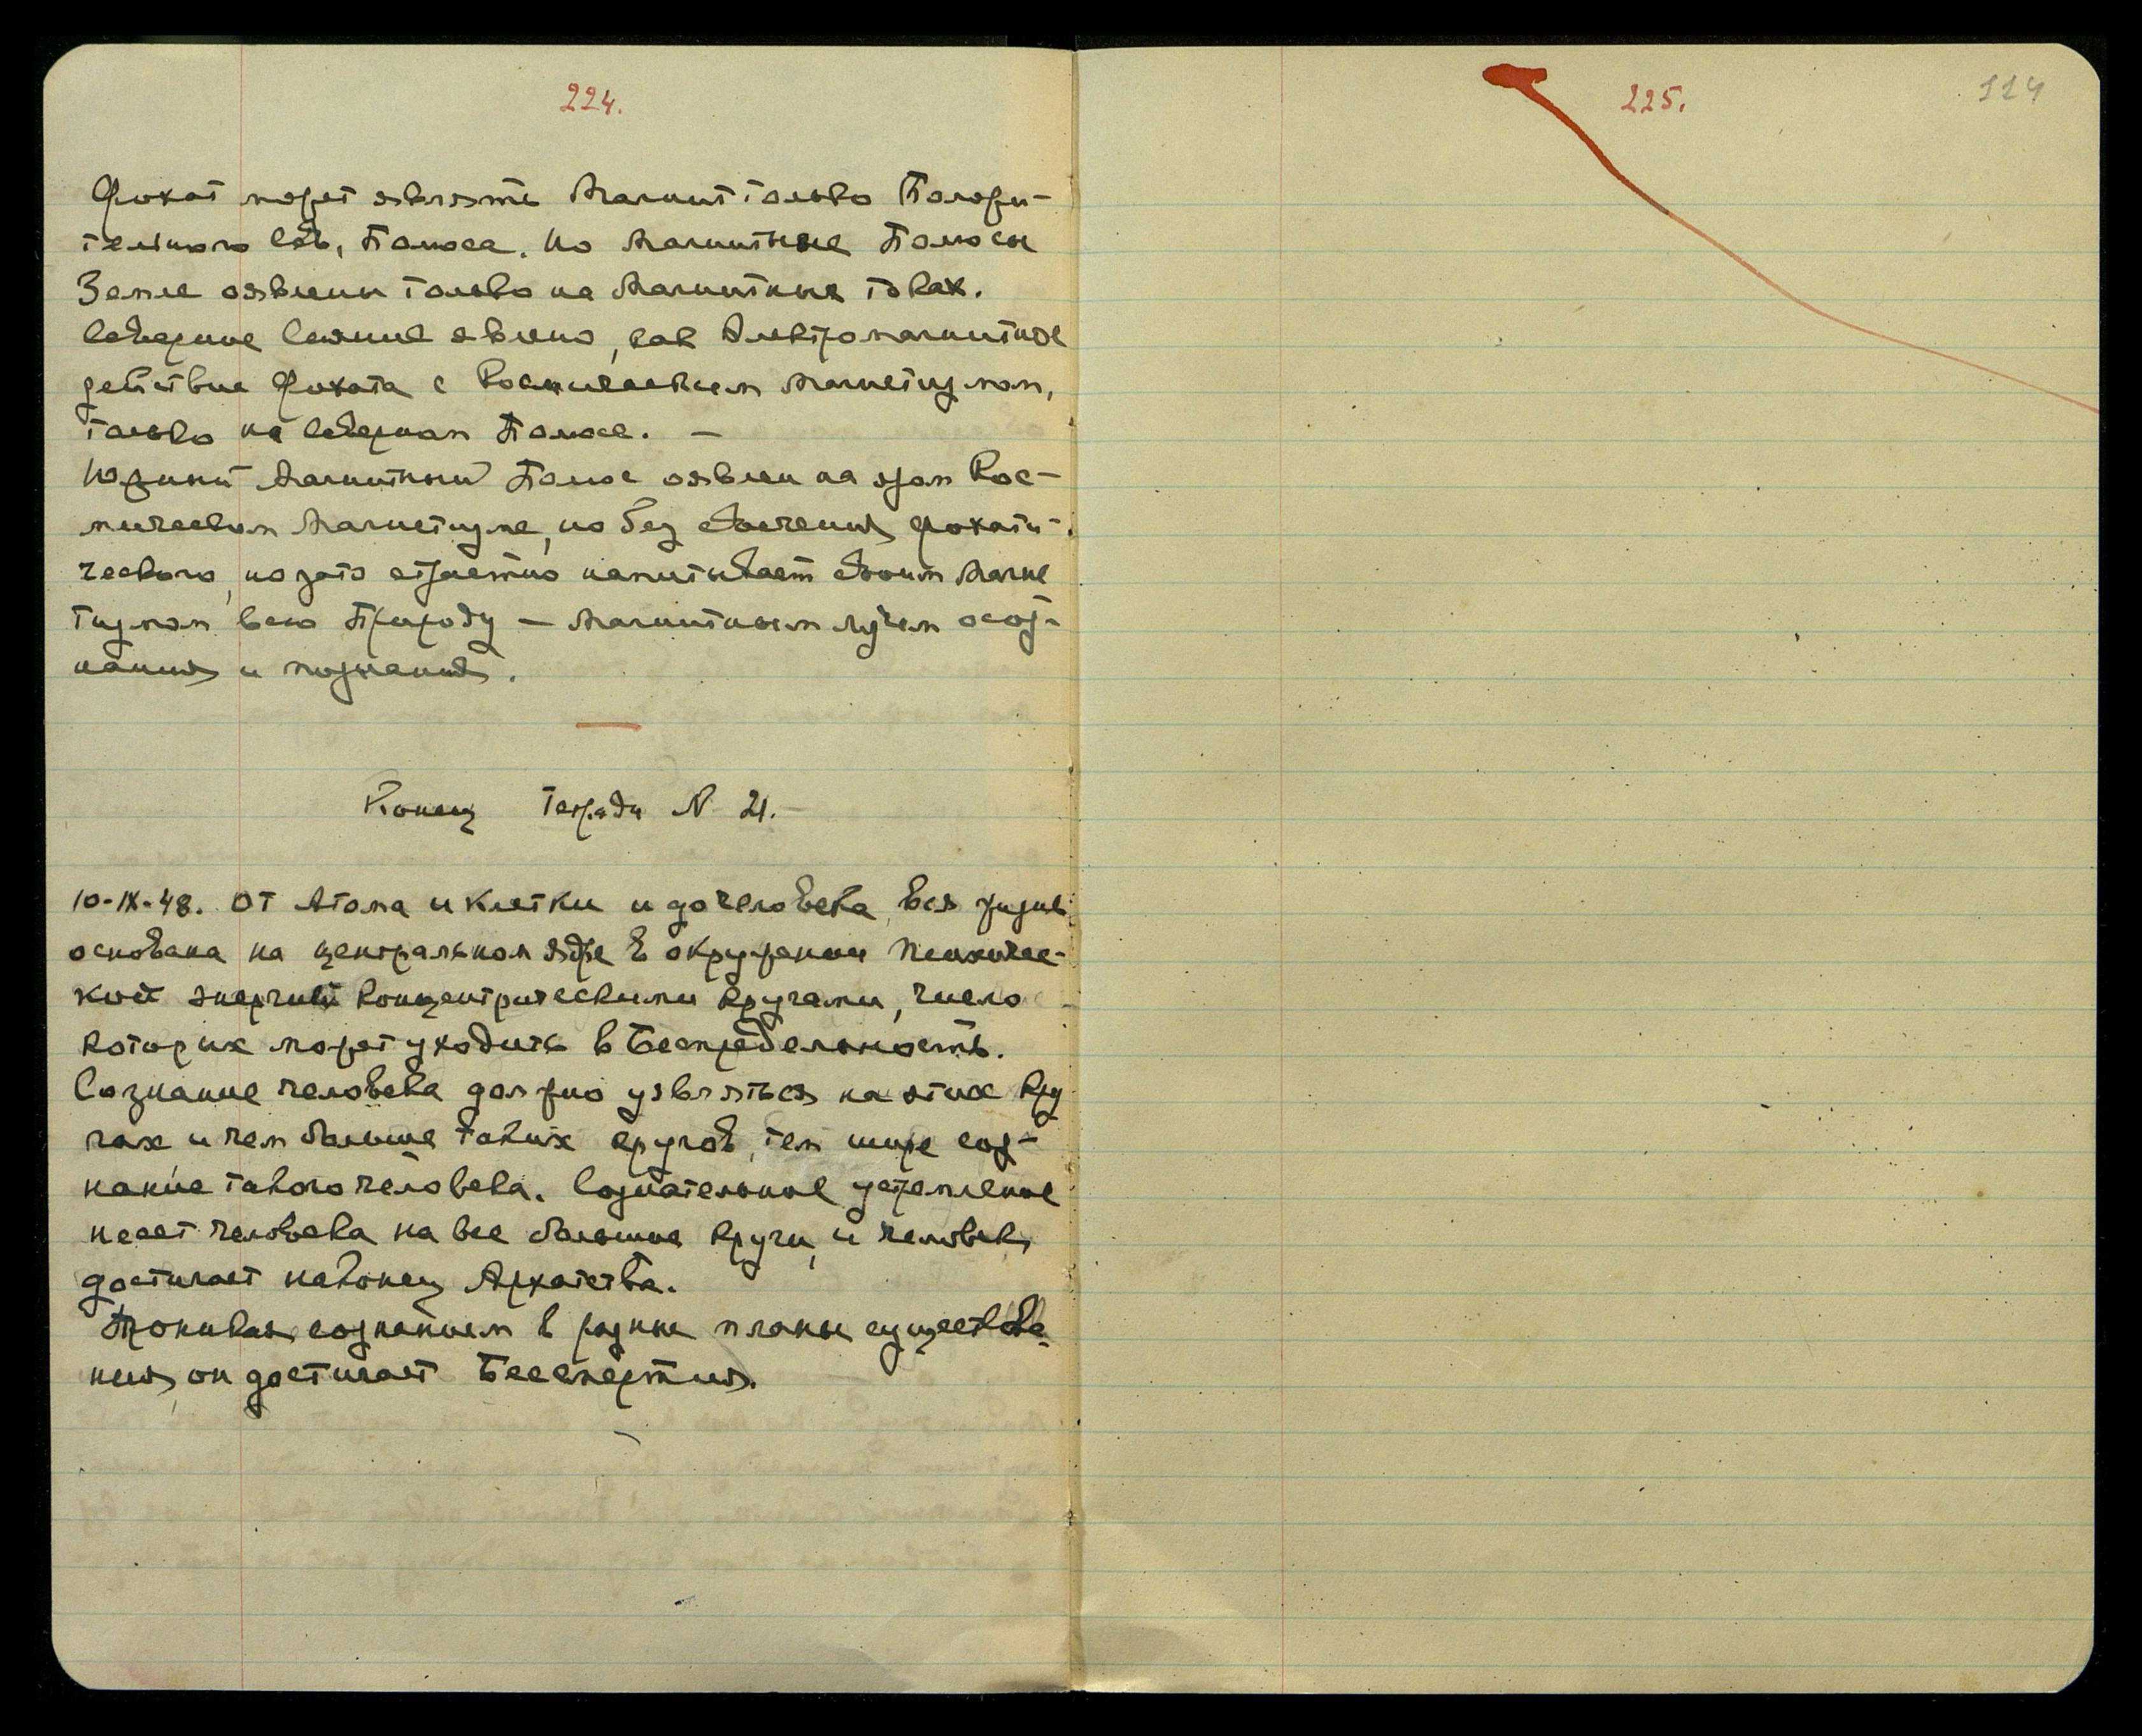 224.
Фохат может являть Магнит только Положи-
тельного Сев. Полюса. Но Магнитные Полюсы
Земле оявлены только на Магнитных токах.
Северное Сияние явлено, как Электромагнитное
действие Фохата с Космическим Магнетизмом,
только на Северном Полюсе. —
Южный Магнитный Полюс оявлен на этом Кос-
мическом Магнетизме, но без Свечения Фохати-
ческого, но зато страстно напитывает Своим Магне
тизмом всю Природу — Магнитным лучем осоз-
нания и познания.
Конец Тетради № 21. —
10-IX-48. От Атома и клетки и до человека, вся жизнь
основана на центральном ядре в окружении Психичес-
кой энергии концентрическими кругами, число
которых может уходить в Беспредельность.
Сознание человека должно уявляться на этих кру
гах и чем больше таких кругов, тем шире соз-
нание такого человека. Сознательное устремление
несет человека на все большие круги, и человек
достигает наконец Архатства.
Проникая сознанием в разные планы существова-
ния, он достигает Бессмертия.
225.
114